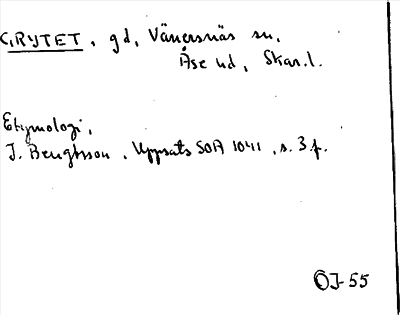 GRYTET, gd, Vänersnäs sn,
Åse hd, Skar.l.
Etymologi,
J. Bengtsson, Uppsats SOA 1041, s. 3 f.
OJ-55